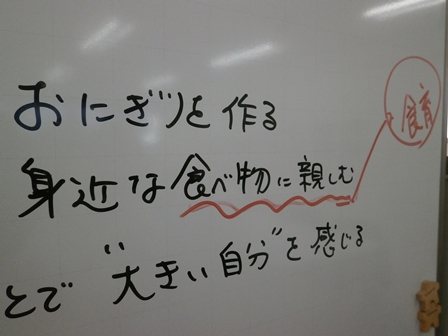 おにぎりを作る
身近な食べ物に親しむ
とで"大きい自分"を感じる
食育